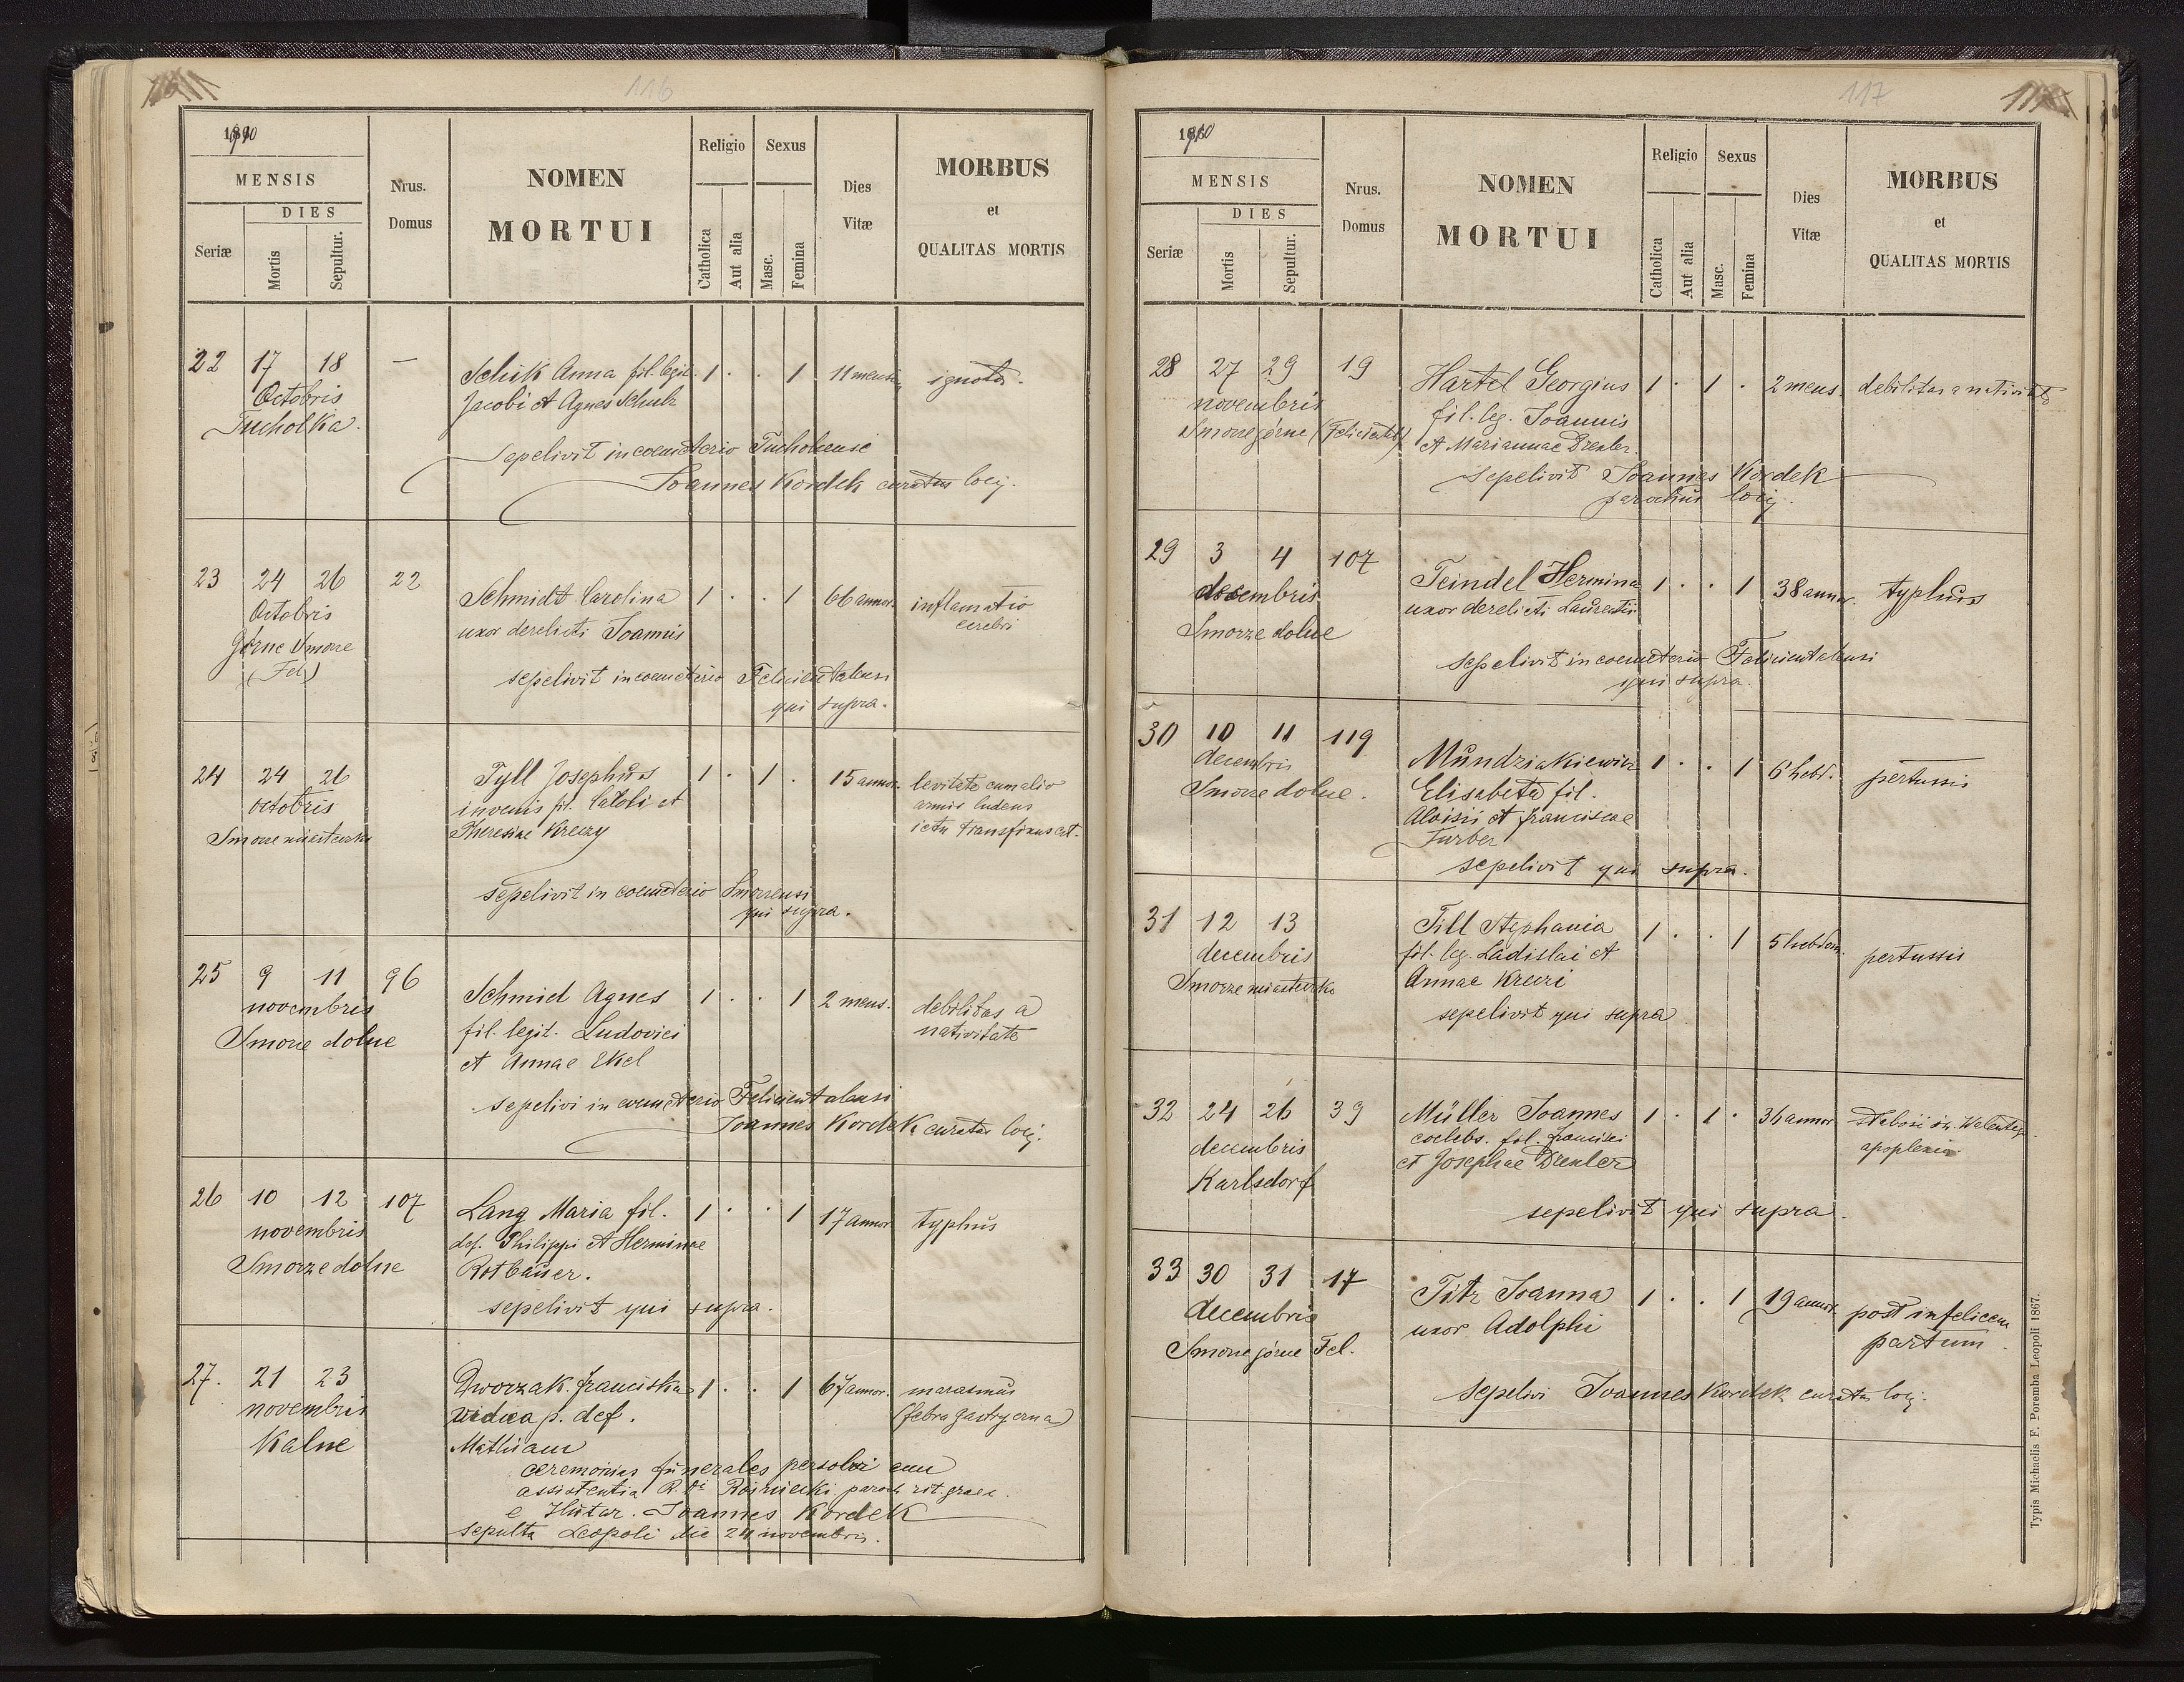 116
1910
MENSIS
DIES
Seriæ
Mortis
Sepultur.
Nrus.
Domus
NOMEN
MORTUI
Religio
Sexus
Catholica
Aut alia
Masc.
Femina
Dies
Vitæ
MORBUS
et
QUALITAS MORTIS
22 17 18 —
Octobris
Tucholka.
Schik Anna fil. legit.
Jacobi et Agnes Schulz
1 · · 1 11 mens. ignota.
Sepelivit in coemeterio Tucholcensi
Joannes Kordek curatus loci.
23 24 26 22
Octobris
Górne Smorze
(Fel)
Schmidt Carolina
uxor derelicti Joannis
1 · · 1 66 annor. inflamatio
cerebri
sepelivit in coemeterio Felicientalensi
qui supra.
24 24 26
octobris
Smorze miasteczko
Tyll Josephus
iuvenis fil. Caroli et
Theresiae Kreczy
1 · 1 · 15 annor. levitate cum alio
armis ludens
ictu transfixus est.
sepelivit in coemeterio Smorzensi
qui supra.
25 9 11 96
novembris
Smorze dolne
Schmid Agnes
fil. legit. Ludovici
et Annae Ekel
1 · · 1 2 mens. debilitas a
nativitate
sepelivi in coemeterio Felicientalensi
Joannes Kordek curatus loci.
26 10 12 107
novembris
Smorze dolne
Lang Maria fil.
def. Philippi et Herminae
Rotbauer.
1 · · 1 17 annor. typhus
sepelivit qui supra.
27. 21 23
novembris
Kalne
Dworzak Franciska
vidua p. def.
Mathiam
1 · · 1 67 annor. marasmus
(febra gastryczna)
ceremonias funerales persolvi cum
assistentia R. Di paroch. rit. graec.
e Hutar. Joannes Kordek
sepulta Leopoli die 24 novembris.
117
1910
MENSIS
DIES
Seriæ
Mortis
Sepultur.
Nrus.
Domus
NOMEN
MORTUI
Religio
Sexus
Catholica
Aut alia
Masc.
Femina
Dies
Vitæ
MORBUS
et
QUALITAS MORTIS
28 27 29 19
novembris
Smorze górne (Feliciental)
Hartel Georgius
fil. leg. Joannis
et Mariannae Drexler.
1 · 1 · 2 mens. debilitas a nativitate
sepelivit Joannes Kordek
parochus loci.
29 3 4 107
decembris
Smorze dolne
Teindel Hermina
uxor derelicti Laurentii
1 · · 1 38 annor. typhus
sepelivit in coemeterio Felicientalensi
qui supra.
30 10 11 119
decembris
Smorze dolne.
Mundziakiewicz
Elisabeta fil.
Aloisii et Franciscae
Furber
1 · · 1 6 hebd. pertussis
sepelivit qui supra.
31 12 13
decembris
Smorze miasteczko
Till Stephania
fil. leg. Ladislai et
Annae Kreczi
1 · · 1 5 hebdom. pertussis
sepelivit qui supra
32 24 26 39
decembris
Karlsdorf
Müller Joannes
coelebs. fil. Francisci
et Josephae Drexler
1 · 1 · 36 annor.
apoplexia
sepelivit qui supra.
33 30 31 17
decembris
Smorze górne Fel.
Titz Joanna
uxor Adolphi
1 · · 1 19 annor. post infelicem
partum.
sepelivi Joannes Kordek curatus loci.
Typis Michaelis F. Poremba Leopoli 1867.